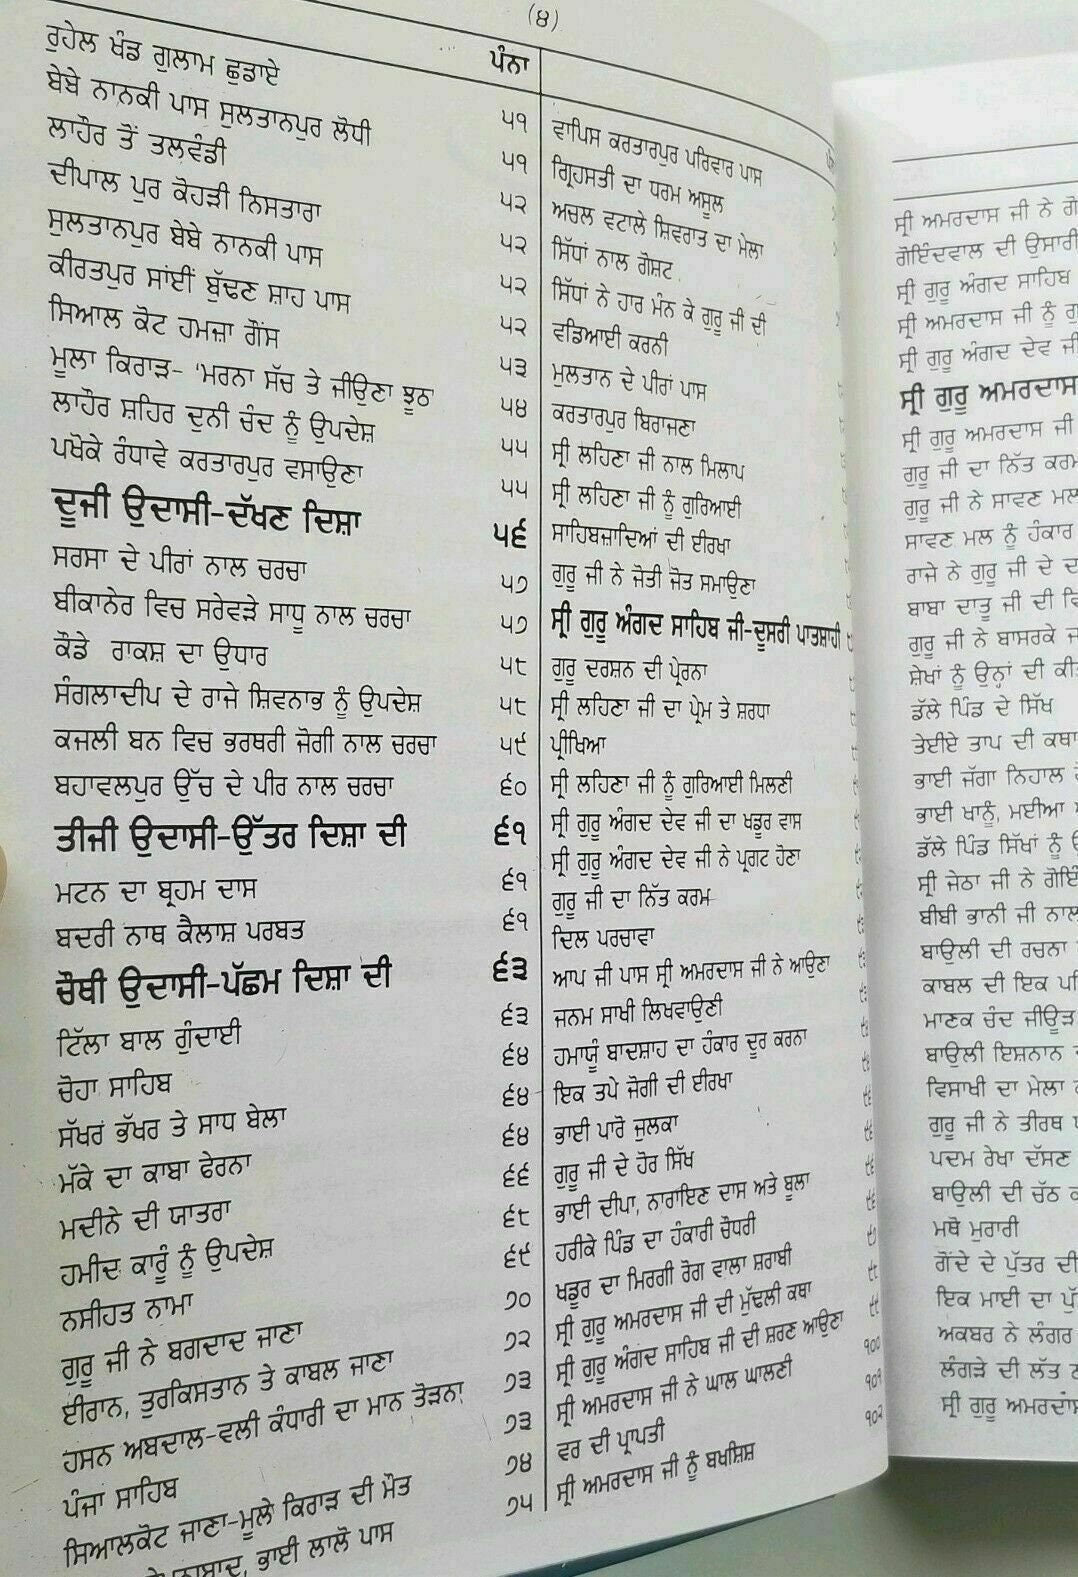 (੪)
ਪੰਨਾ
ਰੁਹੇਲ ਖੰਡ ਗੁਲਾਮ ਛੁਡਾਏ ੫੧
ਬੇਬੇ ਨਾਨਕੀ ਪਾਸ ਸੁਲਤਾਨਪੁਰ ਲੋਧੀ ੫੧
ਲਾਹੌਰ ਤੋਂ ਤਲਵੰਡੀ ੫੨
ਦੀਪਾਲ ਪੁਰ ਕੋਹੜੀ ਨਿਸਤਾਰਾ ੫੨
ਸੁਲਤਾਨਪੁਰ ਬੇਬੇ ਨਾਨਕੀ ਪਾਸ ੫੨
ਕੀਰਤਪੁਰ ਸਾਂਈਂ ਬੁੱਢਣ ਸ਼ਾਹ ਪਾਸ ੫੨
ਸਿਆਲ ਕੋਟ ਹਮਜ਼ਾ ਗੌਂਸ ੫੩
ਮੂਲਾ ਕਿਰਾੜ- 'ਮਰਨਾ ਸੱਚ ਤੇ ਜੀਉਣਾ ਝੂਠਾ ੫੪
ਲਾਹੌਰ ਸ਼ਹਿਰ ਦੁਨੀ ਚੰਦ ਨੂੰ ਉਪਦੇਸ਼ ੫੫
ਪਖੋਕੇ ਰੰਧਾਵੇ ਕਰਤਾਰਪੁਰ ਵਸਾਉਣਾ ੫੫
ਦੂਜੀ ਉਦਾਸੀ-ਦੱਖਣ ਦਿਸ਼ਾ ੫੬
ਸਰਸਾ ਦੇ ਪੀਰਾਂ ਨਾਲ ਚਰਚਾ ੫੭
ਬੀਕਾਨੇਰ ਵਿਚ ਸਰੇਵੜੇ ਸਾਧੂ ਨਾਲ ਚਰਚਾ ੫੭
ਕੌਡੇ ਰਾਕਸ਼ ਦਾ ਉਧਾਰ ੫੮
ਸੰਗਲਾਦੀਪ ਦੇ ਰਾਜੇ ਸ਼ਿਵਨਾਭ ਨੂੰ ਉਪਦੇਸ਼ ੫੮
ਕਜਲੀ ਬਨ ਵਿਚ ਭਰਥਰੀ ਜੋਗੀ ਨਾਲ ਚਰਚਾ ੫੯
ਬਹਾਵਲਪੁਰ ਉੱਚ ਦੇ ਪੀਰ ਨਾਲ ਚਰਚਾ ੬੦
ਤੀਜੀ ਉਦਾਸੀ-ਉੱਤਰ ਦਿਸ਼ਾ ਦੀ ੬੧
ਮਟਨ ਦਾ ਬ੍ਰਹਮ ਦਾਸ ੬੧
ਬਦਰੀ ਨਾਥ ਕੈਲਾਸ਼ ਪਰਬਤ ੬੧
ਚੌਥੀ ਉਦਾਸੀ-ਪੱਛਮ ਦਿਸ਼ਾ ਦੀ ੬੩
ਟਿੱਲਾ ਬਾਲ ਗੁੰਦਾਈ ੬੩
ਚੋਹਾ ਸਾਹਿਬ ੬੪
ਸੱਖਰ ਭੱਖਰ ਤੇ ਸਾਧ ਬੇਲਾ ੬੪
ਮੱਕੇ ਦਾ ਕਾਬਾ ਫੇਰਨਾ ੬੪
ਮਦੀਨੇ ਦੀ ਯਾਤਰਾ ੬੬
ਹਮੀਦ ਕਾਰੂੰ ਨੂੰ ਉਪਦੇਸ਼ ੬੮
ਨਸੀਹਤ ਨਾਮਾ ੬੯
ਗੁਰੂ ਜੀ ਨੇ ਬਗਦਾਦ ਜਾਣਾ ੭੦
ਈਰਾਨ, ਤੁਰਕਿਸਤਾਨ ਤੇ ਕਾਬਲ ਜਾਣਾ ੭੨
ਹਸਨ ਅਬਦਾਲ-ਵਲੀ ਕੰਧਾਰੀ ਦਾ ਮਾਨ ਤੋੜਨਾ ੭੩
ਪੰਜਾ ਸਾਹਿਬ ੭੩
ਸਿਆਲਕੋਟ ਜਾਣਾ-ਮੂਲੇ ਕਿਰਾੜ ਦੀ ਮੌਤ ੭੪
ਭਾਈ ਲਾਲੋ ਪਾਸ ੭੫
ਵਾਪਿਸ ਕਰਤਾਰਪੁਰ ਪਰਿਵਾਰ ਪਾਸ
ਗ੍ਰਿਹਸਤੀ ਦਾ ਧਰਮ ਅਸੂਲ
ਅਚਲ ਵਟਾਲੇ ਸ਼ਿਵਰਾਤ ਦਾ ਮੇਲਾ
ਸਿੱਧਾਂ ਨਾਲ ਗੋਸ਼ਟ
ਸਿੱਧਾਂ ਨੇ ਹਾਰ ਮੰਨ ਕੇ ਗੁਰੂ ਜੀ ਦੀ
ਵਡਿਆਈ ਕਰਨੀ
ਮੁਲਤਾਨ ਦੇ ਪੀਰਾਂ ਪਾਸ
ਕਰਤਾਰਪੁਰ ਬਿਰਾਜਣਾ
ਸ੍ਰੀ ਲਹਿਣਾ ਜੀ ਨਾਲ ਮਿਲਾਪ
ਸ੍ਰੀ ਲਹਿਣਾ ਜੀ ਨੂੰ ਗੁਰਿਆਈ
ਸਾਹਿਬਜ਼ਾਦਿਆਂ ਦੀ ਈਰਖਾ
ਗੁਰੂ ਜੀ ਨੇ ਜੋਤੀ ਜੋਤ ਸਮਾਉਣਾ
ਸ੍ਰੀ ਗੁਰੂ ਅੰਗਦ ਸਾਹਿਬ ਜੀ-ਦੂਸਰੀ ਪਾਤਸ਼ਾਹੀ
ਗੁਰੂ ਦਰਸ਼ਨ ਦੀ ਪ੍ਰੇਰਨਾ
ਸ੍ਰੀ ਲਹਿਣਾ ਜੀ ਦਾ ਪ੍ਰੇਮ ਤੇ ਸ਼ਰਧਾ
ਪ੍ਰੀਖਿਆ
ਸ੍ਰੀ ਲਹਿਣਾ ਜੀ ਨੂੰ ਗੁਰਿਆਈ ਮਿਲਣੀ
ਸ੍ਰੀ ਗੁਰੂ ਅੰਗਦ ਦੇਵ ਜੀ ਦਾ ਖਡੂਰ ਵਾਸ
ਸ੍ਰੀ ਗੁਰੂ ਅੰਗਦ ਦੇਵ ਜੀ ਨੇ ਪ੍ਰਗਟ ਹੋਣਾ
ਗੁਰੂ ਜੀ ਦਾ ਨਿੱਤ ਕਰਮ
ਦਿਲ ਪਰਚਾਵਾ
ਆਪ ਜੀ ਪਾਸ ਸ੍ਰੀ ਅਮਰਦਾਸ ਜੀ ਨੇ ਆਉਣਾ
ਜਨਮ ਸਾਖੀ ਲਿਖਵਾਉਣੀ
ਹਮਾਯੂੰ ਬਾਦਸ਼ਾਹ ਦਾ ਹੰਕਾਰ ਦੂਰ ਕਰਨਾ
ਇਕ ਤਪੇ ਜੋਗੀ ਦੀ ਈਰਖਾ
ਭਾਈ ਪਾਰੋ ਜੁਲਕਾ
ਗੁਰੂ ਜੀ ਦੇ ਹੋਰ ਸਿੱਖ
ਭਾਈ ਦੀਪਾ, ਨਾਰਾਇਣ ਦਾਸ ਅਤੇ ਬੂਲਾ
ਹਰੀਕੇ ਪਿੰਡ ਦਾ ਹੰਕਾਰੀ ਚੌਧਰੀ
ਖਡੂਰ ਦਾ ਮਿਰਗੀ ਰੋਗ ਵਾਲਾ ਸ਼ਰਾਬੀ
ਸ੍ਰੀ ਗੁਰੂ ਅਮਰਦਾਸ ਜੀ ਦੀ ਮੁੱਢਲੀ ਕਥਾ
ਸ੍ਰੀ ਗੁਰੂ ਅੰਗਦ ਸਾਹਿਬ ਜੀ ਦੀ ਸ਼ਰਣ ਆਉਣਾ
ਸ੍ਰੀ ਅਮਰਦਾਸ ਜੀ ਨੇ ਘਾਲ ਘਾਲਣੀ ੧੦੦
ਵਰ ਦੀ ਪ੍ਰਾਪਤੀ ੧੦੧
ਸ੍ਰੀ ਅਮਰਦਾਸ ਜੀ ਨੂੰ ਬਖਸ਼ਿਸ਼ ੧੦੨
ਸ੍ਰੀ ਅਮਰਦਾਸ ਜੀ ਨੇ
ਗੋਇੰਦਵਾਲ ਦੀ ਉਸਾਰੀ
ਸ੍ਰੀ ਗੁਰੂ ਅੰਗਦ ਸਾਹਿਬ
ਸ੍ਰੀ ਅਮਰਦਾਸ ਜੀ ਨੂੰ
ਸ੍ਰੀ ਗੁਰੂ ਅੰਗਦ ਦੇਵ ਜੀ
ਸ੍ਰੀ ਗੁਰੂ ਅਮਰਦਾਸ
ਸ੍ਰੀ ਗੁਰੂ ਅਮਰਦਾਸ ਜੀ
ਗੁਰੂ ਜੀ ਦਾ ਨਿੱਤ ਕਰਮ
ਗੁਰੂ ਜੀ ਨੇ ਸਾਵਣ ਮਲ
ਸਾਵਣ ਮਲ ਨੂੰ ਹੰਕਾਰ
ਰਾਜੇ ਨੇ ਗੁਰੂ ਜੀ ਦੇ
ਬਾਬਾ ਦਾਤੂ ਜੀ ਦੀ
ਗੁਰੂ ਜੀ ਨੇ ਬਾਸਰਕੇ
ਸ਼ੇਖਾਂ ਨੂੰ ਉਨ੍ਹਾਂ ਦੀ
ਡੱਲੇ ਪਿੰਡ ਦੇ ਸਿੱਖ
ਤੇਈਏ ਤਾਪ ਦੀ ਕਥਾ
ਭਾਈ ਜੱਗਾ ਨਿਹਾਲ
ਭਾਈ ਖਾਨੂੰ, ਮਈਆ
ਡੱਲੇ ਪਿੰਡ ਸਿੱਖਾਂ ਨੂੰ
ਸ੍ਰੀ ਜੇਠਾ ਜੀ ਨੇ
ਬੀਬੀ ਭਾਨੀ ਜੀ ਨਾਲ
ਬਾਉਲੀ ਦੀ ਰਚਨਾ
ਕਾਬਲ ਦੀ ਇਕ
ਮਾਣਕ ਚੰਦ ਜੀਉੜ
ਬਾਉਲੀ ਇਸ਼ਨਾਨ
ਵਿਸਾਖੀ ਦਾ ਮੇਲਾ
ਗੁਰੂ ਜੀ ਨੇ ਤੀਰਥ
ਪਦਮ ਰੇਖਾ ਦੱਸਣ
ਬਾਉਲੀ ਦੀ ਚੱਠ
ਮਥੋ ਮੁਰਾਰੀ
ਗੋਂਦੇ ਦੇ ਪੁੱਤਰ ਦੀ
ਇਕ ਮਾਈ ਦਾ
ਅਕਬਰ ਨੇ ਲੰਗਰ
ਲੰਗੜੇ ਦੀ ਲੱਤ
ਸ੍ਰੀ ਗੁਰੂ ਅਮਰਦਾਸ